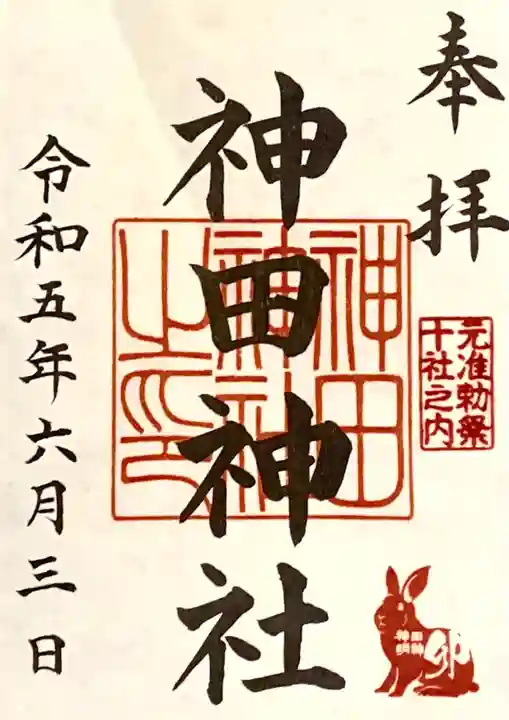 奉拝
元准勅祭
十社之内
卯
神田神社
神田
神社
之印
令和五年六月三日